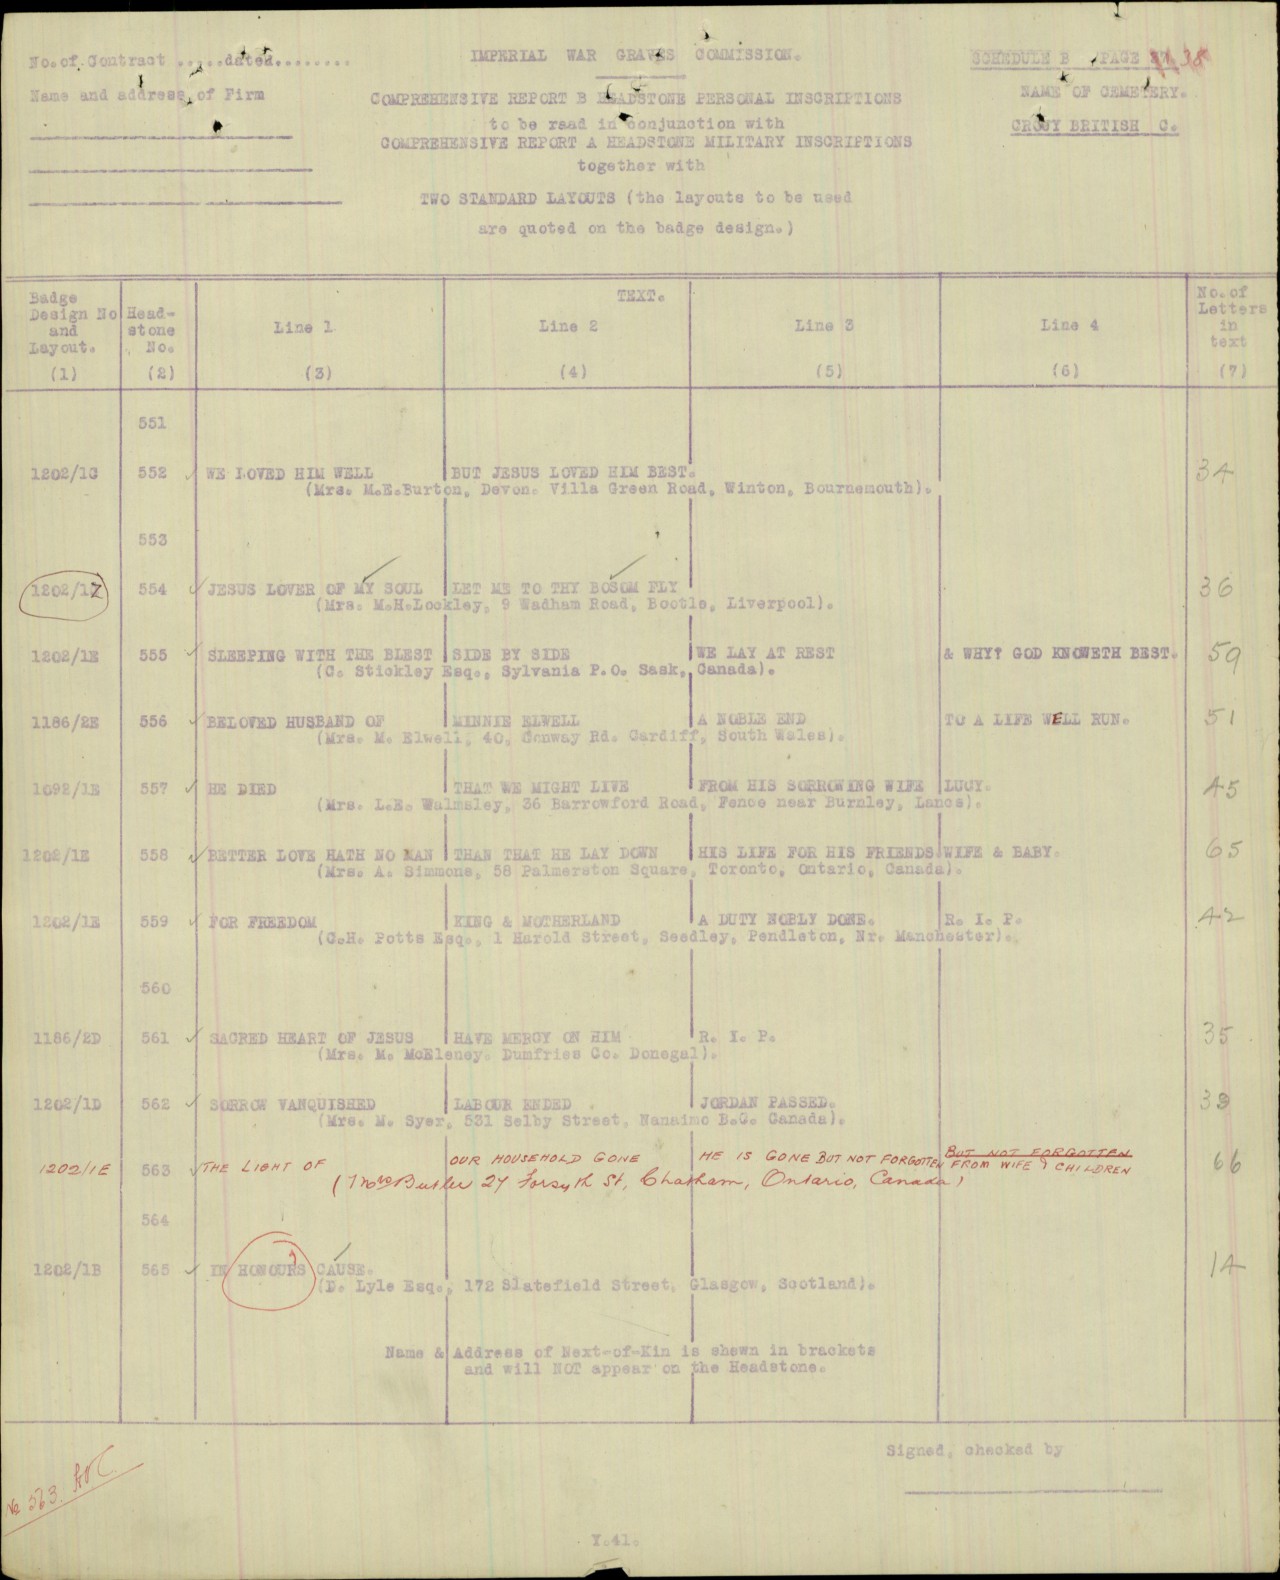 No. of Contract .....dated........
Name and address of Firm
IMPERIAL WAR GRAVES COMMISSION.
COMPREHENSIVE REPORT B HEADSTONE PERSONAL INSCRIPTIONS
to be read in conjunction with
COMPREHENSIVE REPORT A HEADSTONE MILITARY INSCRIPTIONS
together with
TWO STANDARD LAYOUTS (the layouts to be used
are quoted on the badge design.)
SCHEDULE B PAGE 38
NAME OF CEMETERY.
CROUY BRITISH C.
Badge Design No and Layout. (1)
Head-stone No. (2)
TEXT.
Line 1 (3)
Line 2 (4)
Line 3 (5)
Line 4 (6)
No. of Letters in text (7)
551
1202/1C 552 WE LOVED HIM WELL BUT JESUS LOVED HIM BEST. 34
(Mrs. M.E.Burton, Devon. Villa Green Road, Winton, Bournemouth).
553
1202/1Z 554 JESUS LOVER OF MY SOUL LET ME TO THY BOSOM FLY 36
(Mrs. M.H.Lockley, 9 Wadham Road, Bootle, Liverpool).
1202/1E 555 SLEEPING WITH THE BLEST SIDE BY SIDE WE LAY AT REST & WHY? GOD KNOWETH BEST. 59
(C. Stickley Esq., Sylvania P.O. Sask, Canada).
1186/2E 556 BELOVED HUSBAND OF MINNIE ELWELL A NOBLE END TO A LIFE WELL RUN. 51
(Mrs. M. Elwell, 40, Conway Rd. Cardiff, South Wales).
1092/1E 557 HE DIED THAT WE MIGHT LIVE FROM HIS SORROWING WIFE LUCY. 45
(Mrs. L.E. Walmsley, 36 Barrowford Road, Fence near Burnley, Lancs).
1202/1E 558 BETTER LOVE HATH NO MAN THAN THAT HE LAY DOWN HIS LIFE FOR HIS FRIENDS WIFE & BABY. 65
(Mrs. A. Simmons, 58 Palmerston Square, Toronto, Ontario, Canada).
1202/1E 559 FOR FREEDOM KING & MOTHERLAND A DUTY NOBLY DONE. R. I. P. 42
(C.H. Potts Esq., 1 Harold Street, Seedley, Pendleton, Nr. Manchester).
560
1186/2D 561 SACRED HEART OF JESUS HAVE MERCY ON HIM R. I. P. 35
(Mrs. M. McEleney. Dumfries Co. Donegal).
1202/1D 562 SORROW VANQUISHED LABOUR ENDED JORDAN PASSED. 39
(Mrs. M. Syer, 531 Selby Street, Nanaimo B.C. Canada).
BUT NOT FORGOTTEN
1202/1E 563 THE LIGHT OF OUR HOUSEHOLD GONE HE IS GONE BUT NOT FORGOTTEN FROM WIFE & CHILDREN 66
(Mrs Butler 27 Forsyth St, Chatham, Ontario, Canada)
564
1202/1B 565 IN HONOURS CAUSE. 14
(D. Lyle Esq., 172 Slatefield Street, Glasgow, Scotland).
Name & Address of Next-of-Kin is shewn in brackets
and will NOT appear on the Headstone.
Signed, checked by
No 563.
Y.41.